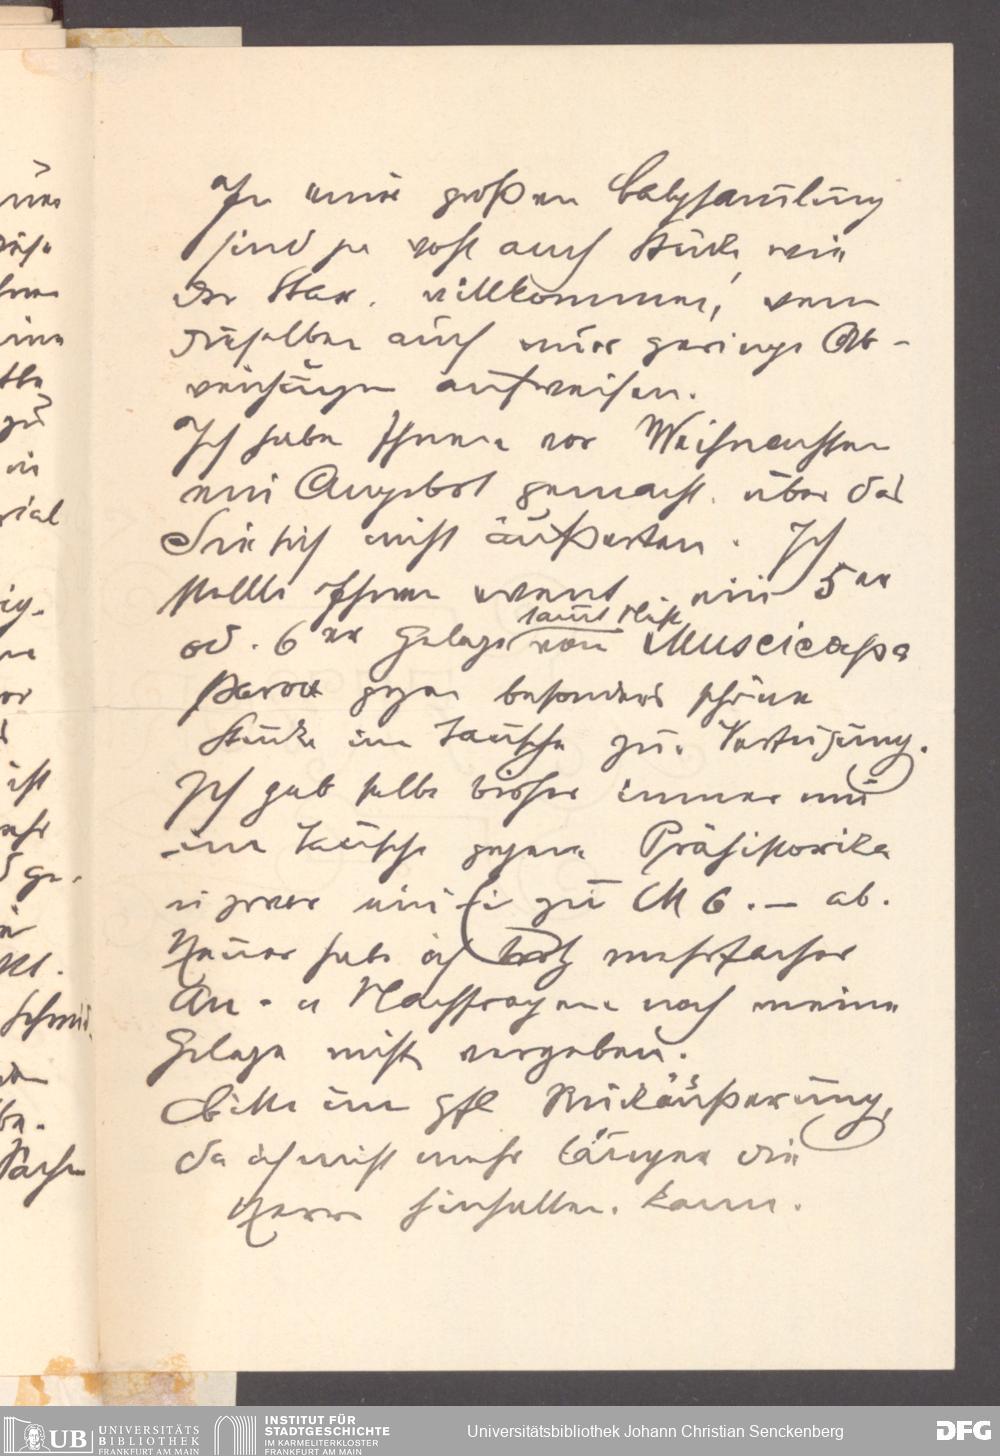 In einer großen Balgsammlung
sind ja wohl auch Stücke wie
der Star. willkommen, wenn
dieselben auch nur geringe Ab-
weichungen aufweisen.
Ich habe Ihnen vor Weihnachten
ein Angebot gemacht. über das
Sie sich nicht äußerten. Ich
stelle Ihnen event. ein 5er
od. 6er Gelege samt Nest von Muscicapa
parva gegen besonders schöne
Stücke im Tausche zur Verfügung.
Ich gab selbe bisher immer nur
im Tausche gegen Prähistorika
u zwar ein Ei zu M 6.— ab.
Heuer habe ich trotz mehrfacher
An- u Nachfragen noch meine
Gelege nicht vergeben.
Bitte um gfl Rückäußerung,
da ich nicht mehr länger die
Herrn hinhalten. kann.
ist
rial
Schmid
UB UNIVERSITÄTS BIBLIOTHEK FRANKFURT AM MAIN
INSTITUT FÜR STADTGESCHICHTE IM KARMELITERKLOSTER FRANKFURT AM MAIN
Universitätsbibliothek Johann Christian Senckenberg
DFG